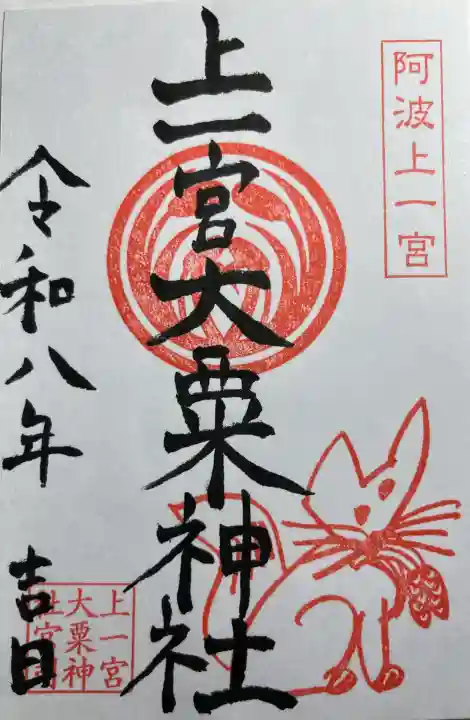 阿波上一宮
上一宮大粟神社
令和八年
吉日
上一宮
大粟神
社宮司